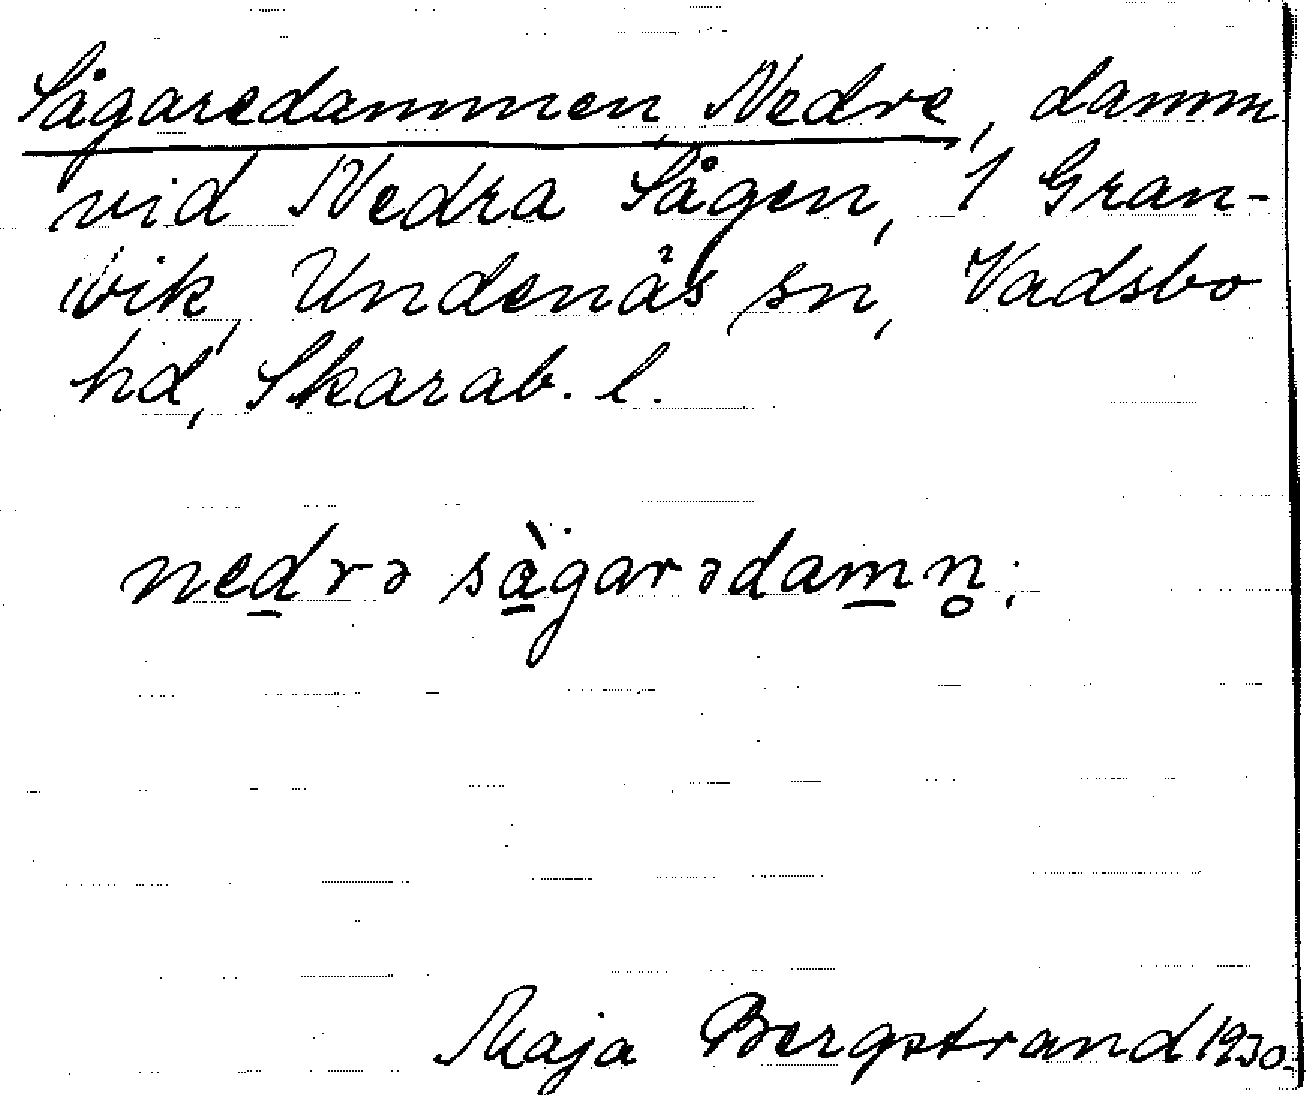 Sågaredammen, Nedre, damm
vid Nedra Sågen, 1 Gran-
vik, Undenäs sn, Vadsbo
hd, Skarab. l.
ned̲rə sà̲garədam̲n̥.
Maja Bergstrand 1930.